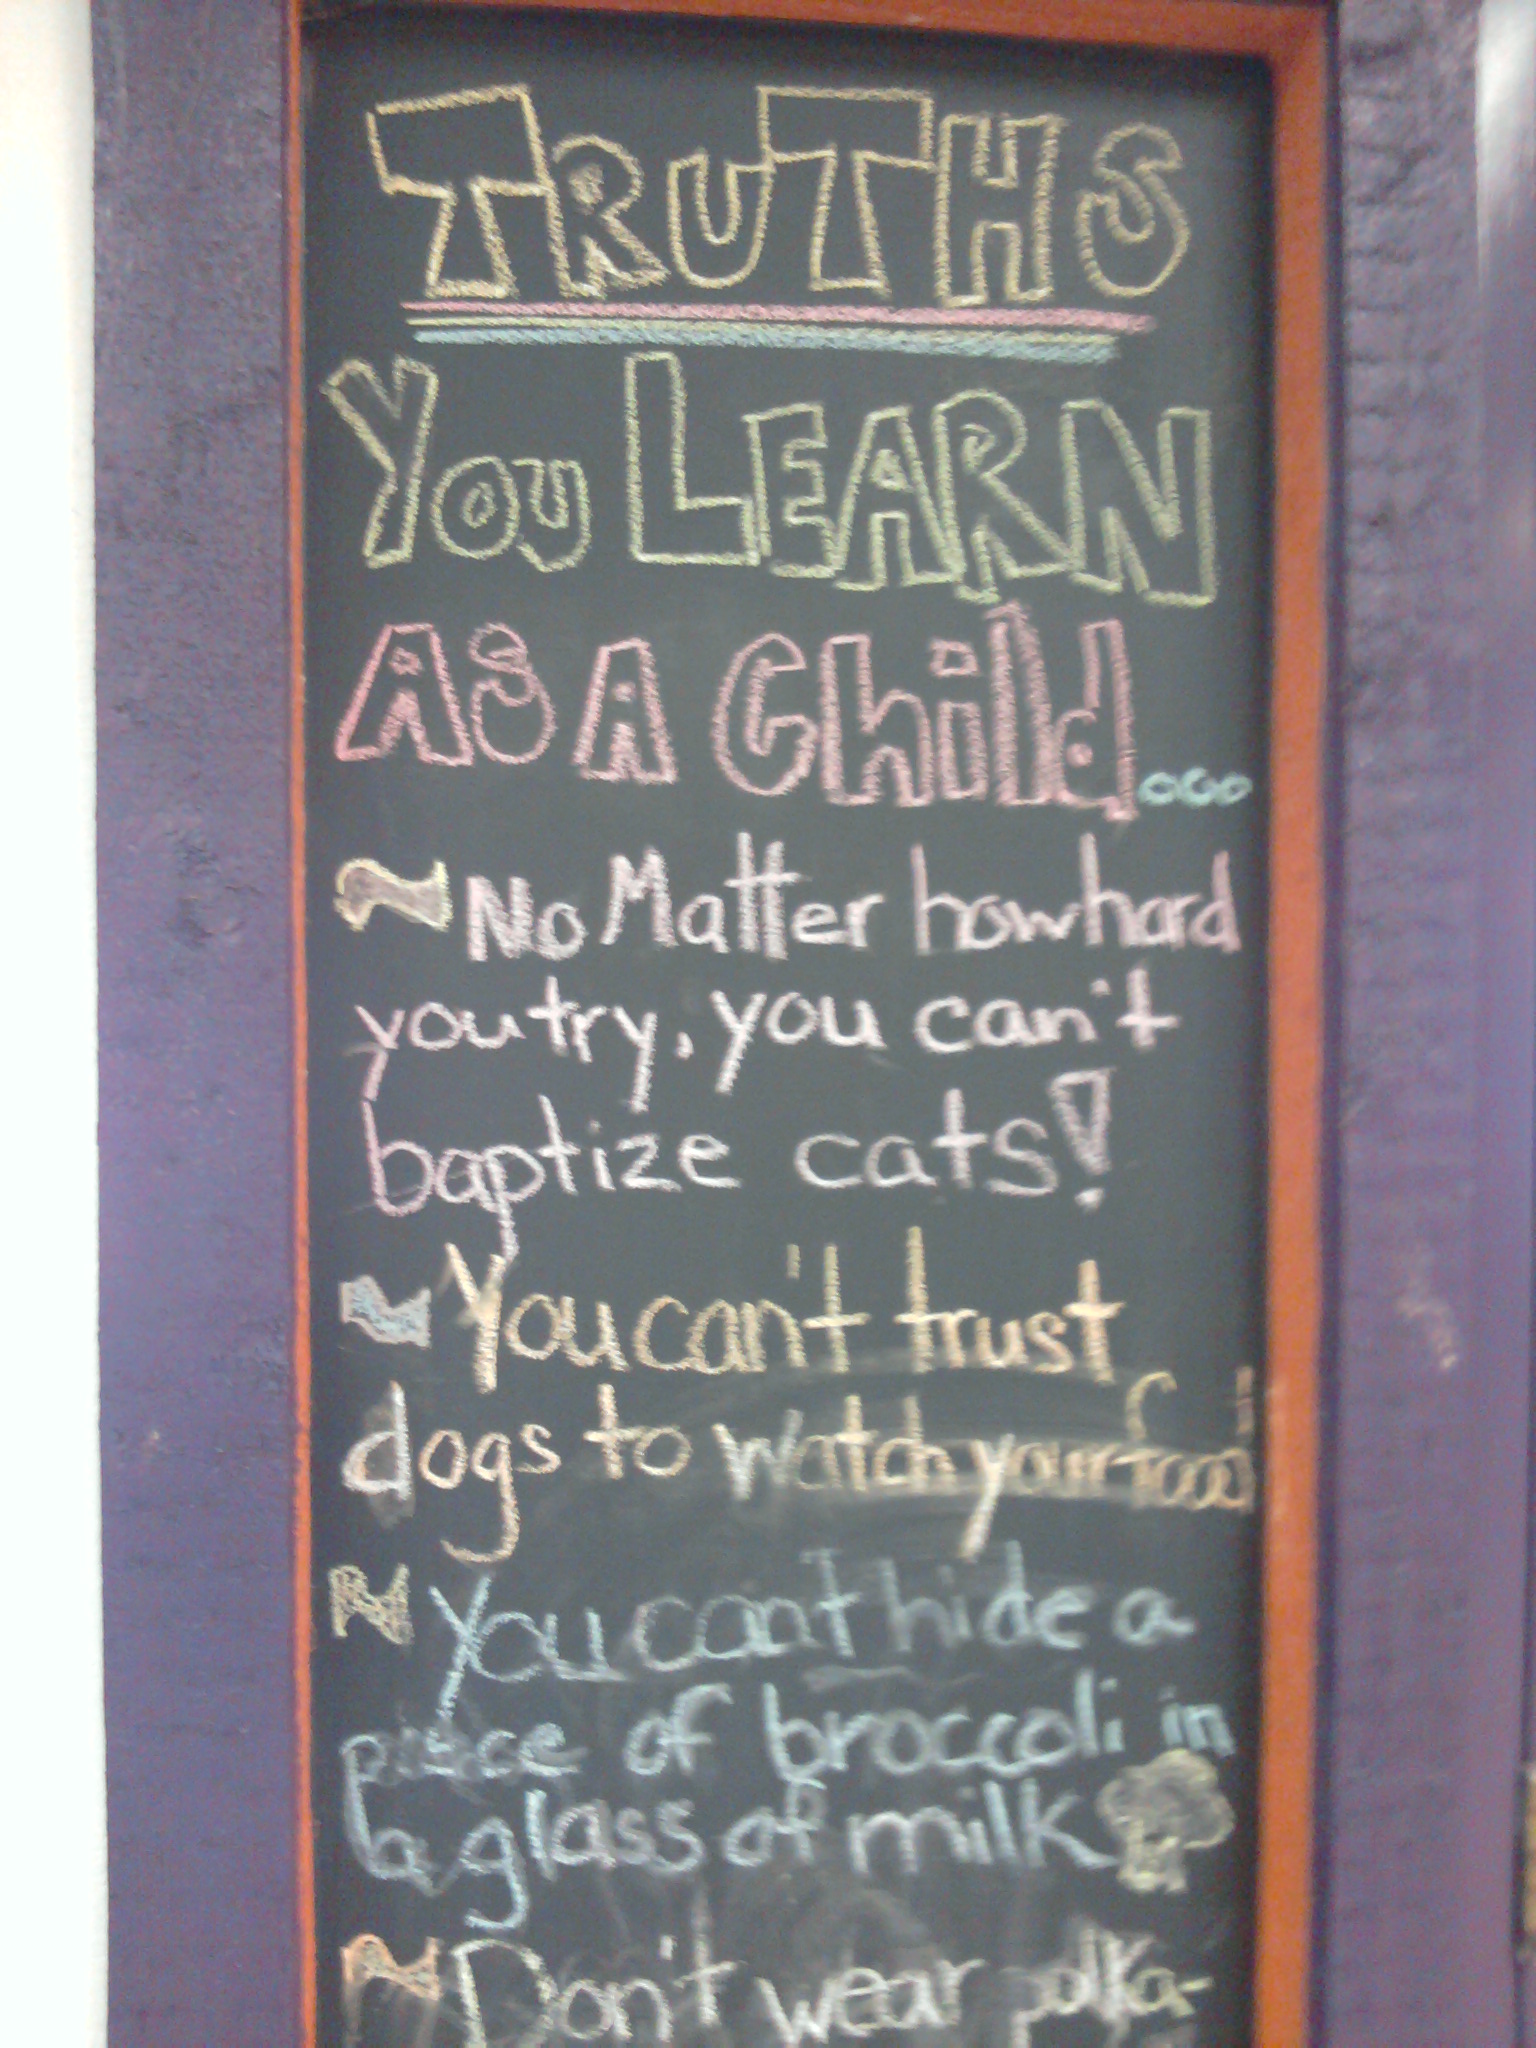 TRUTHS
You LEARN
AS A Child...
~ No Matter how hard
you try, you can't
baptize cats!
~ You can't trust
dogs to watch your food
~ You can't hide a
piece of broccoli in
a glass of milk
~ Don't wear polka-